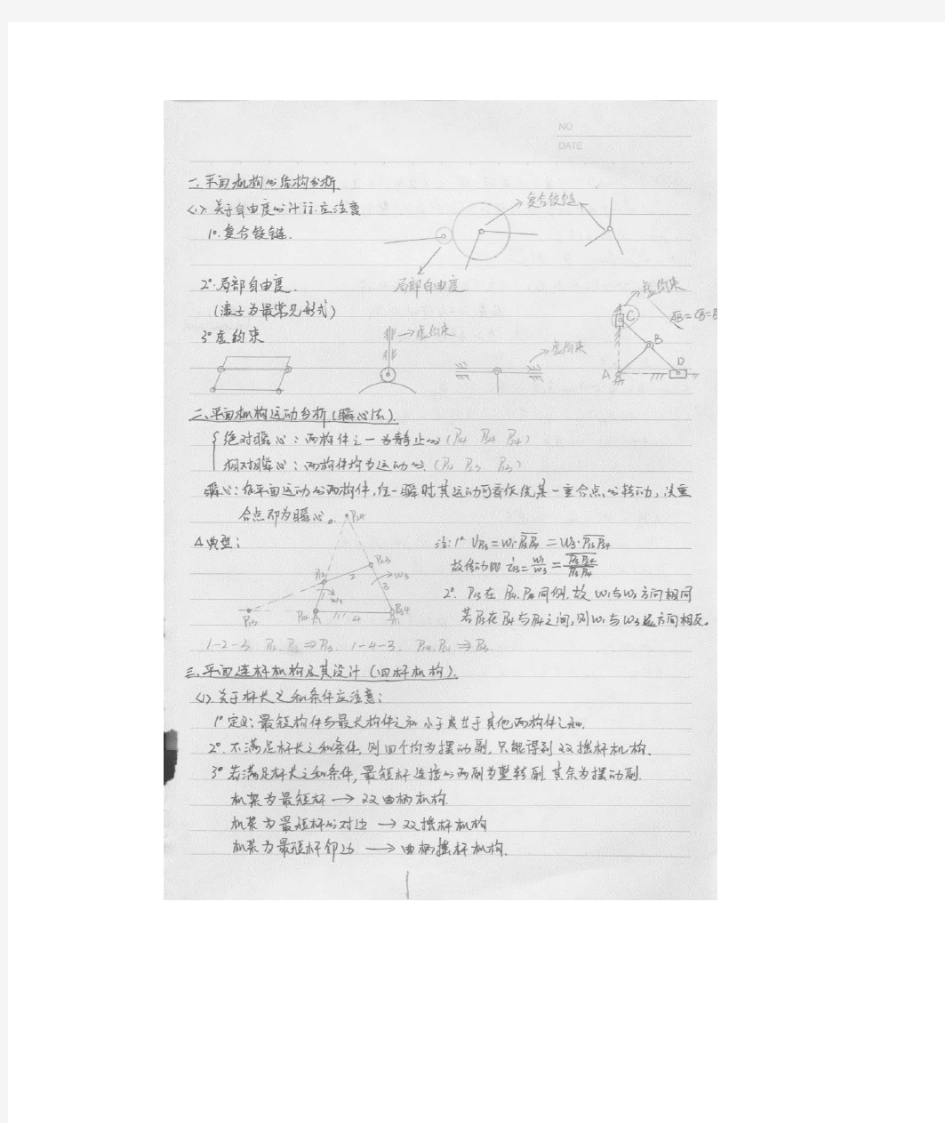 NO
DATE
一、平面机构的结构分析
<1> 关于自由度的计算应注意
1°. 复合铰链.
复合铰链
2°. 局部自由度.
局部自由度
(滚子为最常见形式)
3° 虚约束
→虚约束
→虚约束
→虚约束
C
B
A
D
二、平面机构运动分析(瞬心法).
绝对瞬心: 两构件之一为静止的 (P14 P24 P34)
相对瞬心: 两构件均为运动的. (P12 P13 P23)
瞬心: 作平面运动的两构件, 任一瞬时其运动可看作绕某一重合点的转动, 该重
合点即为瞬心。
P24
△典型:
注: 1° VP13 = W1·P13P14 = W3·P13P34
故传动比 i13 = W1/W3 = P13P34/P13P14
2°. P13在P14、P34同侧, 故 W1与W3方向相同
若P13在P14与P34之间, 则W1与W3方向相反。
P12
2
P23
W3
3
1
W1
P13
P14
4
P34
1-2-3. P12、P23 ⇒ P13. 1-4-3. P14、P34 ⇒ P13
三、平面连杆机构及其设计 (四杆机构).
<1> 关于杆长之和条件应注意:
1° 定义: 最短构件与最长构件之和小于或等于其他两构件之和.
2°. 不满足杆长之和条件, 则四个均为摆动副, 只能得到双摇杆机构.
3° 若满足杆长之和条件, 最短杆连接的两副为整转副, 其余为摆动副.
机架为最短杆 → 双曲柄机构.
机架为最短杆的对边 → 双摇杆机构
机架为最短杆邻边 → 曲柄摇杆机构.